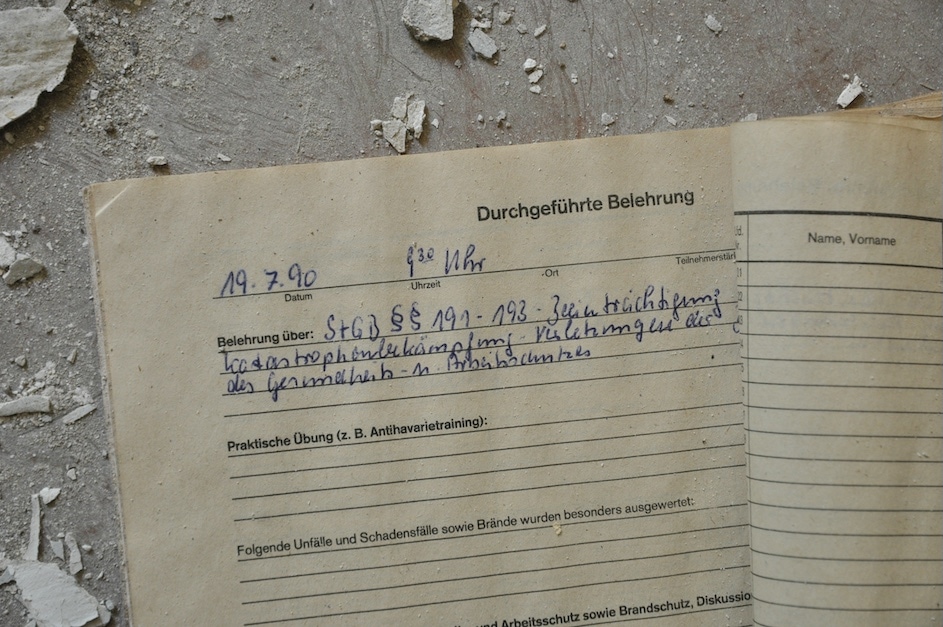 Durchgeführte Belehrung
19.7.90 9³⁰ Uhr
Datum Uhrzeit -Ort Teilnehmerstär
Belehrung über: StGB §§ 191-193 - Beeinträchtigung
Katastrophenbekämpfung - Verletzungen des
des Gesundheits- u. Arbeitsschutzes
Praktische Übung (z. B. Antihavarietraining):
Folgende Unfälle und Schadensfälle sowie Brände wurden besonders ausgewertet:
und Arbeitsschutz sowie Brandschutz, Diskussio
Name, Vorname